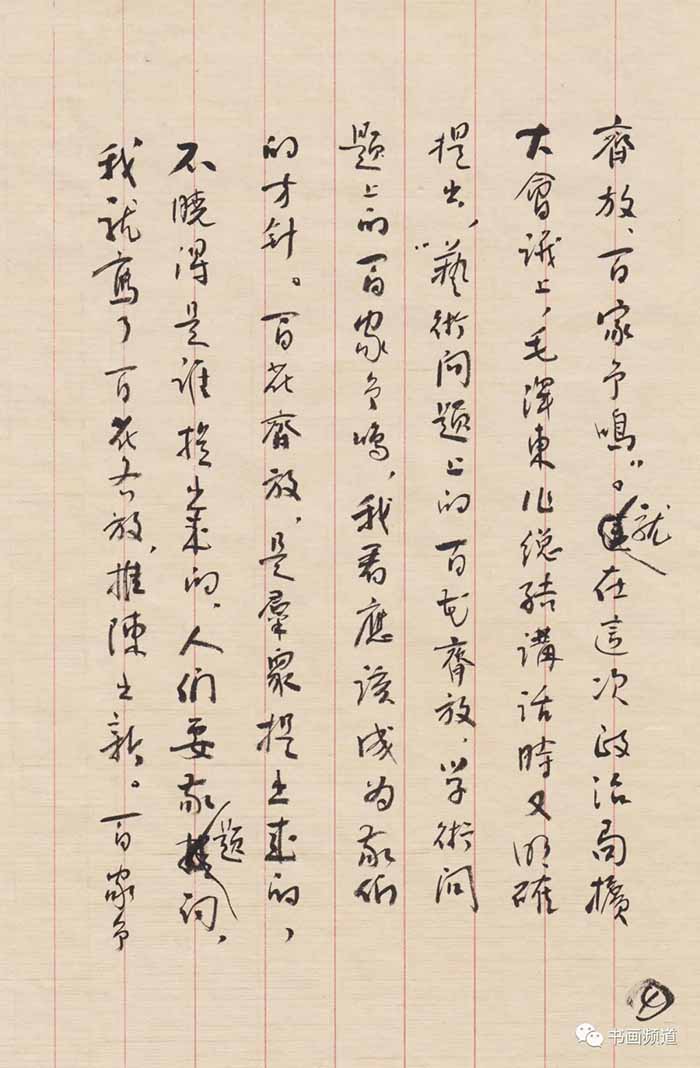 齊放、百家争鳴”。就在這次政治局擴
大會議上，毛澤東作總結講話時又明確
提出，“藝術问题上的百花齊放，学術问
題上的百家争鳴，我看應該成为我们
的方針。百花齊放，是羣眾提出来的，
不曉得是谁提出来的，人们要我題词，
我就寫了百花齐放，推陳出新。百家争
④
书画频道